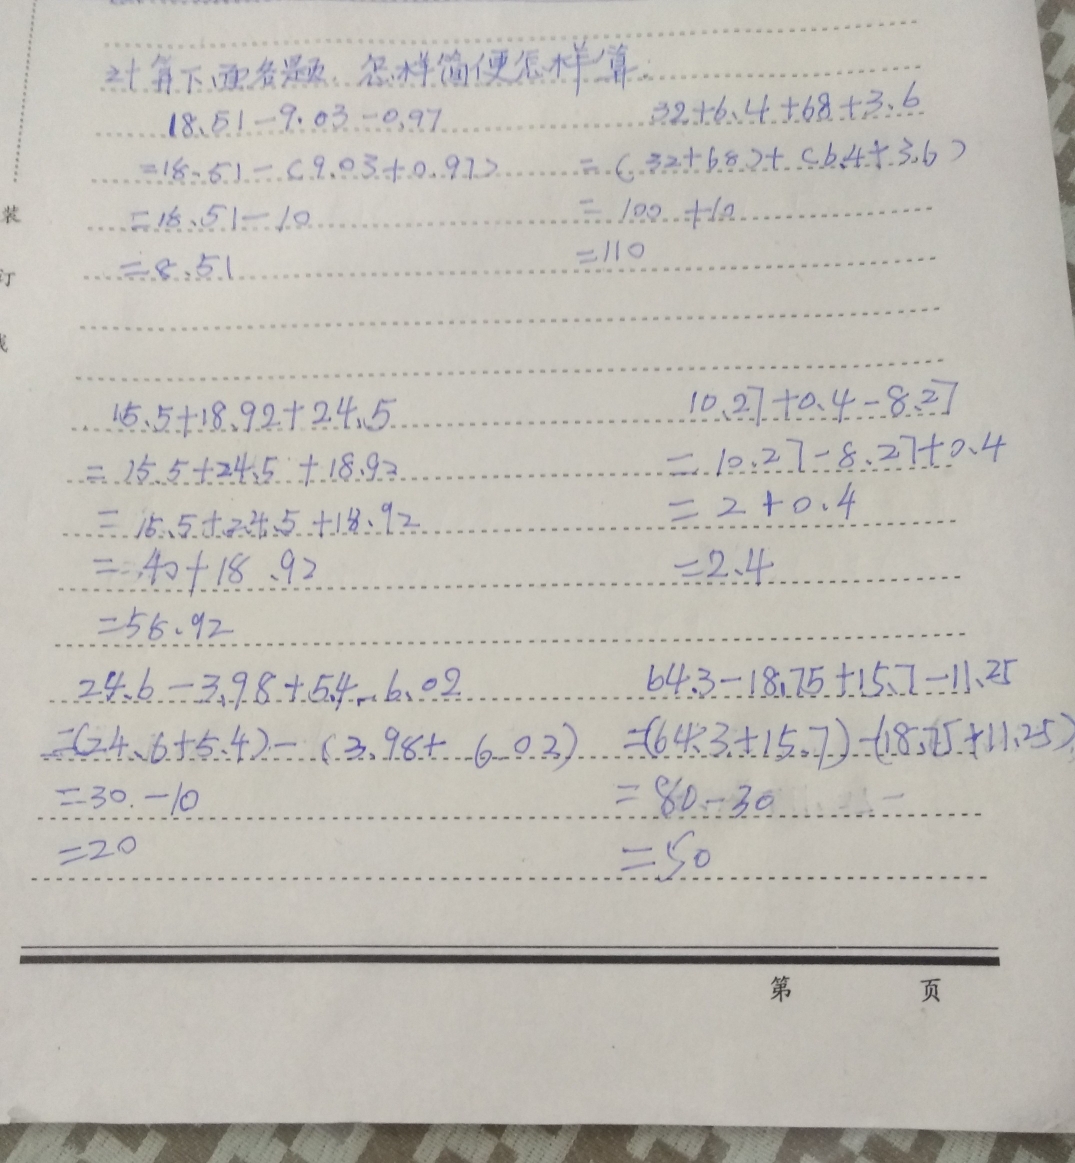 计算下面各题，怎样简便怎样算.
18.51-9.03-0.97
32+6.4+68+3.6
=18.51-(9.03+0.97)
=(32+68)+(6.4+3.6)
=18.51-10
=100+10
=8.51
=110
15.5+18.92+24.5
10.27+0.4-8.27
=15.5+24.5+18.92
=10.27-8.27+0.4
=15.5+24.5+18.92
=2+0.4
=40+18.92
=2.4
=58.92
24.6-3.98+5.4-6.02
64.3-18.75+15.7-11.25
=(24.6+5.4)-(3.98+6.02)
=(64.3+15.7)-(18.75+11.25)
=30-10
=80-30
=20
=50
装
订
第 页